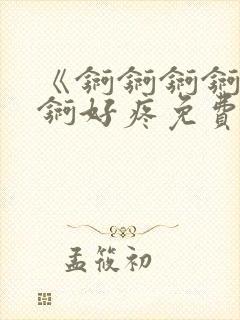 《锕锕锕锕
锕好疼免费
孟筱初